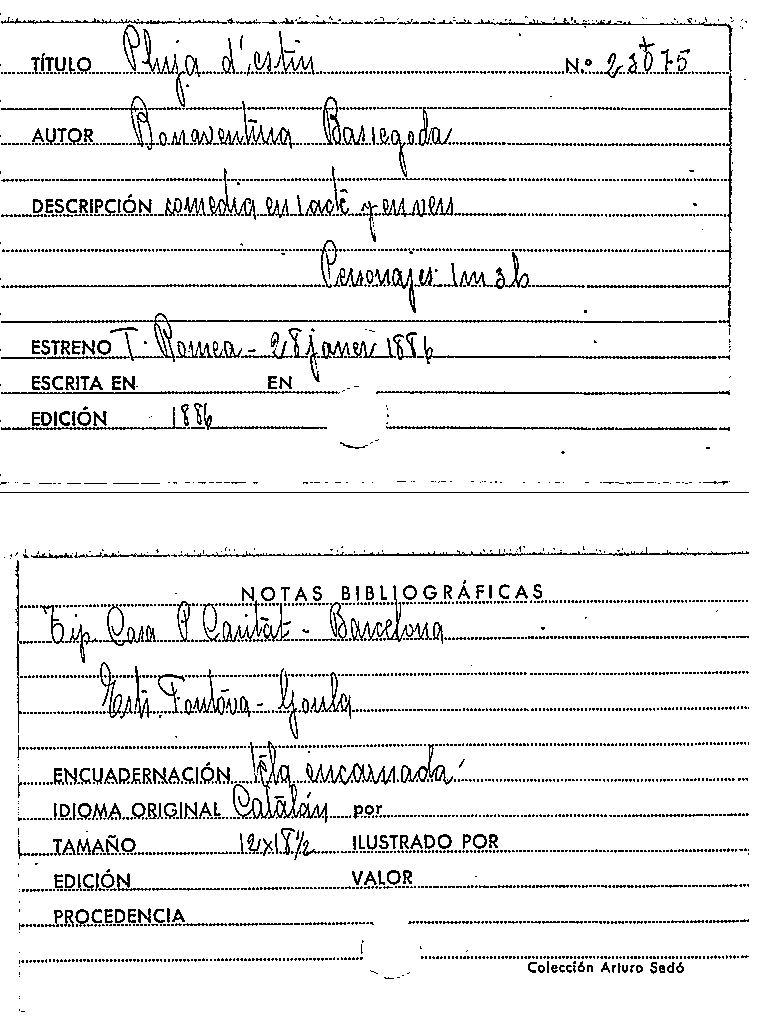 TÍTULO Pluja d'estiu N.º 23075
AUTOR Bonaventura Bassegoda
DESCRIPCIÓN comedia en 1 acte y en vers
Personajes 1m 3h
ESTRENO T. Romea - 28 janer 1886
ESCRITA EN EN
EDICIÓN 1886
NOTAS BIBLIOGRÁFICAS
Tip. Casa P Caritat - Barcelona
Estr. Fontova - Goula
ENCUADERNACIÓN tela encarnada
IDIOMA ORIGINAL Catalán por
TAMAÑO 12x18½ ILUSTRADO POR
EDICIÓN VALOR
PROCEDENCIA
Colección Arturo Sedó